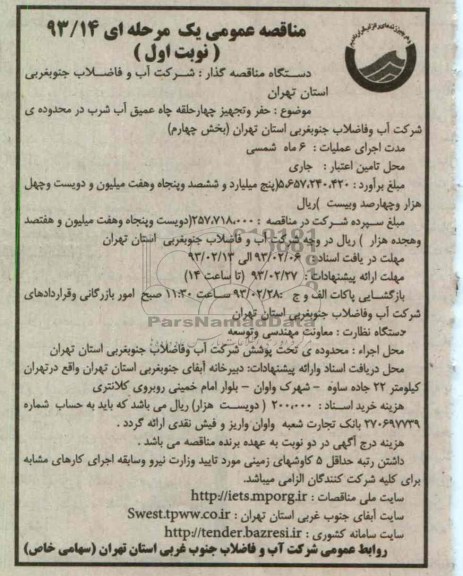 مناقصه عمومی یک مرحله ای ۹۳/۱۴
( نوبت اول )
دستگاه مناقصه گذار : شرکت آب و فاضلاب جنوبغربی
استان تهران
موضوع : حفر وتجهیز چهارحلقه چاه عمیق آب شرب در محدوده ی
شرکت آب وفاضلاب جنوبغربی استان تهران (بخش چهارم)
مدت اجرای عملیات : ۶ ماه شمسی
محل تامین اعتبار : جاری
مبلغ برآورد : ۵،۶۵۷،۲۴۰،۴۲۰(پنج میلیارد و ششصد وپنجاه وهفت میلیون و دویست وچهل
هزار وچهارصد وبیست )ریال
مبلغ سپرده شرکت در مناقصه : ۲۵۷،۷۱۸،۰۰۰(دویست وپنجاه وهفت میلیون و هفتصد
وهجده هزار ) ریال در وجه شرکت آب و فاضلاب جنوبغربی استان تهران
مهلت در یافت اسناد: ۹۳/۰۲/۰۶ الی ۹۳/۰۲/۱۳
مهلت ارائه پیشنهادات : ۹۳/۰۲/۲۷ (تا ساعت ۱۴)
بازگشایی پاکات الف و ج :۹۳/۰۲/۲۸ ساعت ۱۱:۳۰ صبح امور بازرگانی وقراردادهای
شرکت آب وفاضلاب جنوبغربی استان تهران
ParsNamadData
دستگاه نظارت : معاونت مهندسی وتوسعه
محل اجراء : محدوده ی تحت پوشش شرکت آب وفاضلاب جنوبغربی استان تهران
محل دریافت اسناد وارائه پیشنهادات: دبیرخانه آبفای جنوبغربی استان تهران واقع درتهران
کیلومتر ۲۲ جاده ساوه - شهرک واوان - بلوار امام خمینی روبروی کلانتری
هزینه خرید اسناد : ۲۰۰،۰۰۰ ( دویست هزار) ریال می باشد که باید به حساب شماره
۲۷۰۶۹۷۷۳۹ بانک تجارت شعبه واوان واریز و فیش نقدی ارائه گردد .
هزینه درج آگهی در دو نوبت به عهده برنده مناقصه می باشد .
داشتن رتبه حداقل ۵ کاوشهای زمینی مورد تایید وزارت نیرو وسابقه اجرای کارهای مشابه
برای کلیه شرکت کنندگان الزامی میباشد.
سایت ملی مناقصات : http://iets.mporg.ir
سایت آبفای جنوب غربی استان تهران : Swest.tpww.co.ir
سایت سامانه کشوری : http://tender.bazresi.ir
روابط عمومی شرکت آب و فاضلاب جنوب غربی استان تهران (سهامی خاص)